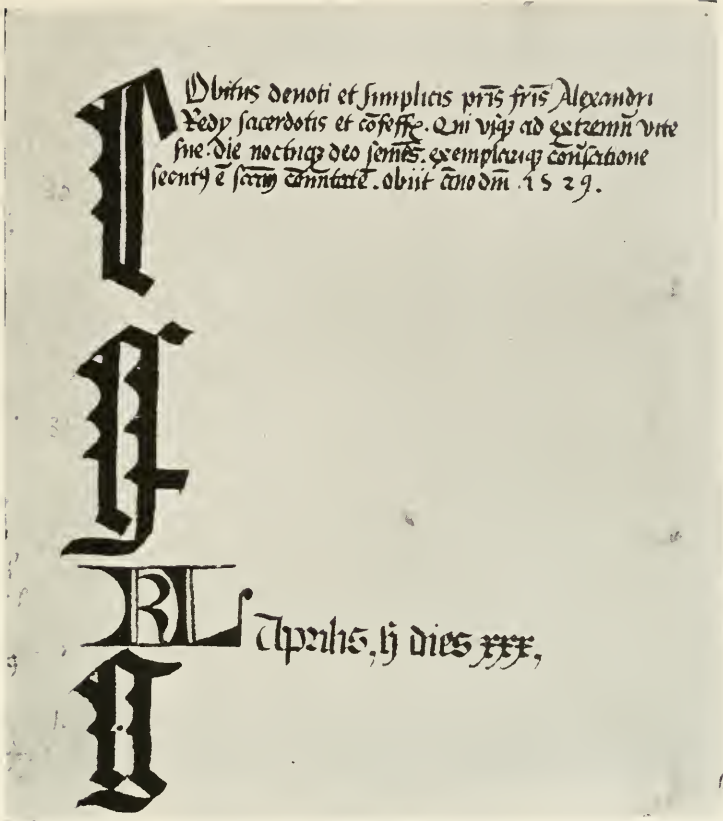 Obitus deuoti et simplicis pr̄is fr̄is Alexandri
Redy sacerdotis et cōfess̄ꝝ. Qui vsq̨ ad extremū vite
sue. die noctuq̨ deo seruiēs. exemplariq̨ cōuersatione
secutꝰ ē
obiit āno dn̄i .1529.
f
g
KL Aprilis, h̄ dies xxx,
g